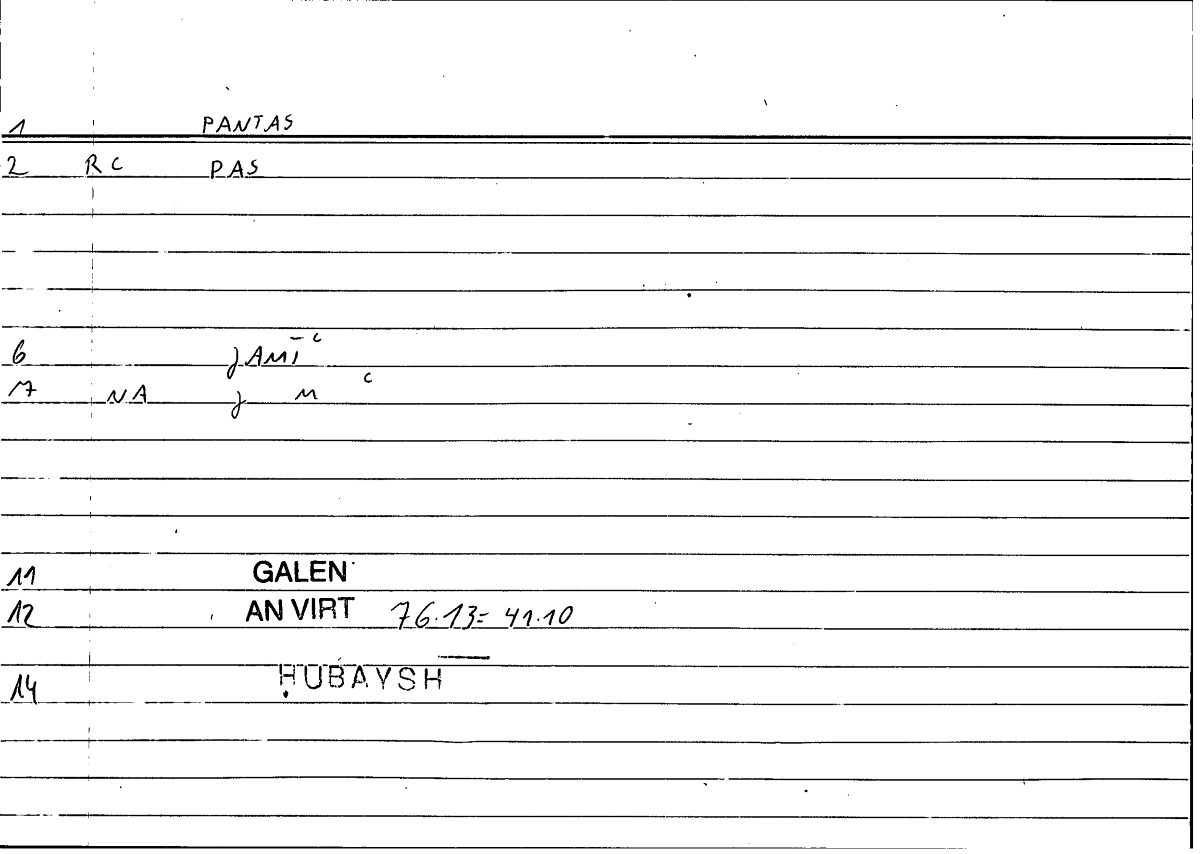 1 PANTAS
2 RC PAS
6 JAMĪʿ
7 NA J M ʿ
11 GALEN
12 AN VIRT 76.13= 41.10
14 ḤUBAYSH